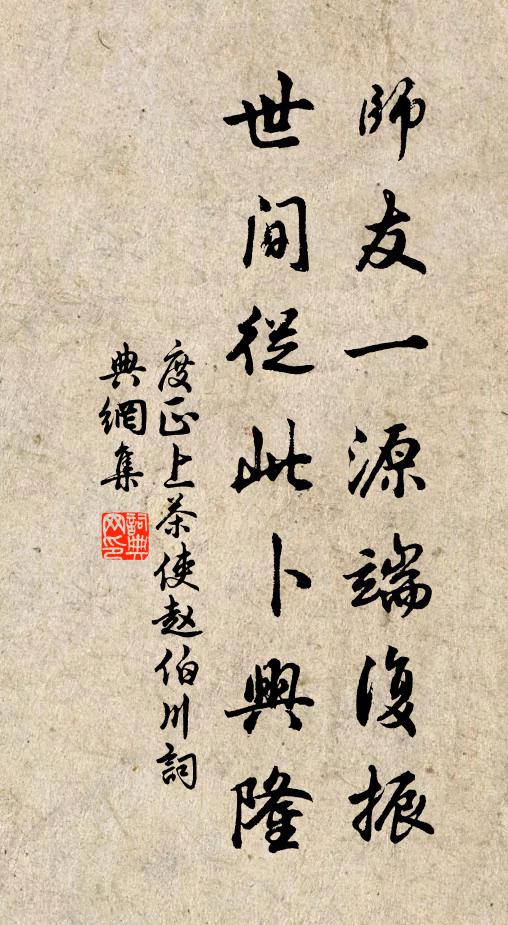 師友一源端復振
世間從此卜興隆
度正上茶使赵伯川詞
典網集
詞典
网印